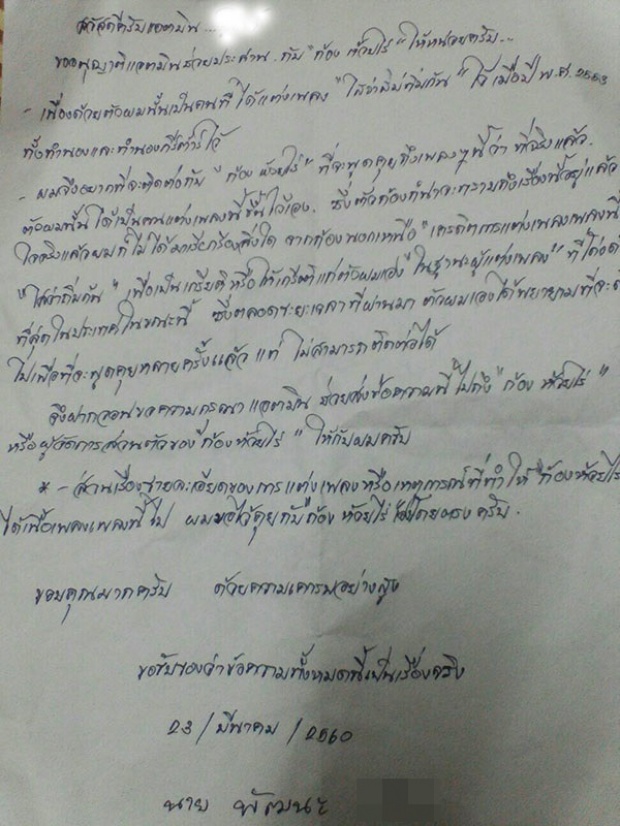 สวัสดีครับแอดมิน...
ขออนุญาติแอดมินช่วยประสาน กับ "ก้อง ห้วยไร่" ให้หน่อยครับ...
- เนื่องด้วยตัวผมนั้นเป็นคนที่ได้แต่งเพลง "ไสว่าสิบ่ถิ่มกัน" ไว้ เมื่อปี พ.ศ. 2553
ทั้งทำนองและทำนองกีต้าร์ไว้
- ผมจึงอยากที่จะติดต่อกับ "ก้อง ห้วยไร่" ที่จะพูดคุยถึงเพลงๆนี้ว่า ที่จริงแล้ว
ตัวผมนั้นได้เป็นคนแต่งเพลงนี้ขึ้นไว้เอง. ซึ่งตัวก้องก็น่าจะทราบถึงเรื่องนี้อยู่แล้ว
ใจจริงแล้วผมก็ไม่ได้มาเรียกร้องสิ่งใด จากก้องนอกเหนือ "เครดิตการแต่งเพลงเพลงนี้
"ไสว่าถิ่มกัน" เพื่อเป็นเกรียติหรือให้เกรียติแก่ตัวผมเอง "ในฐานะผู้แต่งเพลง" ที่โด่งดั
ที่สุดในประเทศในขณะนี้ ซึ่งตลอดระยะเวลาที่ผ่านมา ตัวผมเองได้พยายามที่จะ
ไปเพื่อที่จะพูดคุยหลายครั้งแล้ว แต่ ไม่สามารถติดต่อได้
จึงฝากวอนขอความกรุณา แอดมิน ช่วยส่งข้อความนี้ไปถึง "ก้อง ห้วยไร่"
หรือผู้จัดการส่วนตัวของ "ก้องห้วยไร่" ให้กับผมครับ
* - ส่วนเรื่องรายละเอียดของการแต่งเพลงหรือเหตุการณ์ที่ทำให้ "ก้องห้วยไร่
ได้เนื้อเพลงเพลงนี้ไป ผมขอไว้คุยกับก้อง ห้วยไร่ โดยตรง ครับ.
ขอบคุณมากครับ ด้วยความเคารพอย่างสูง
ขอรับรองว่าข้อความทั้งหมดนี้เป็นเรื่องจริง
23 / มีนาคม / 2560
นาย พัฒนะ